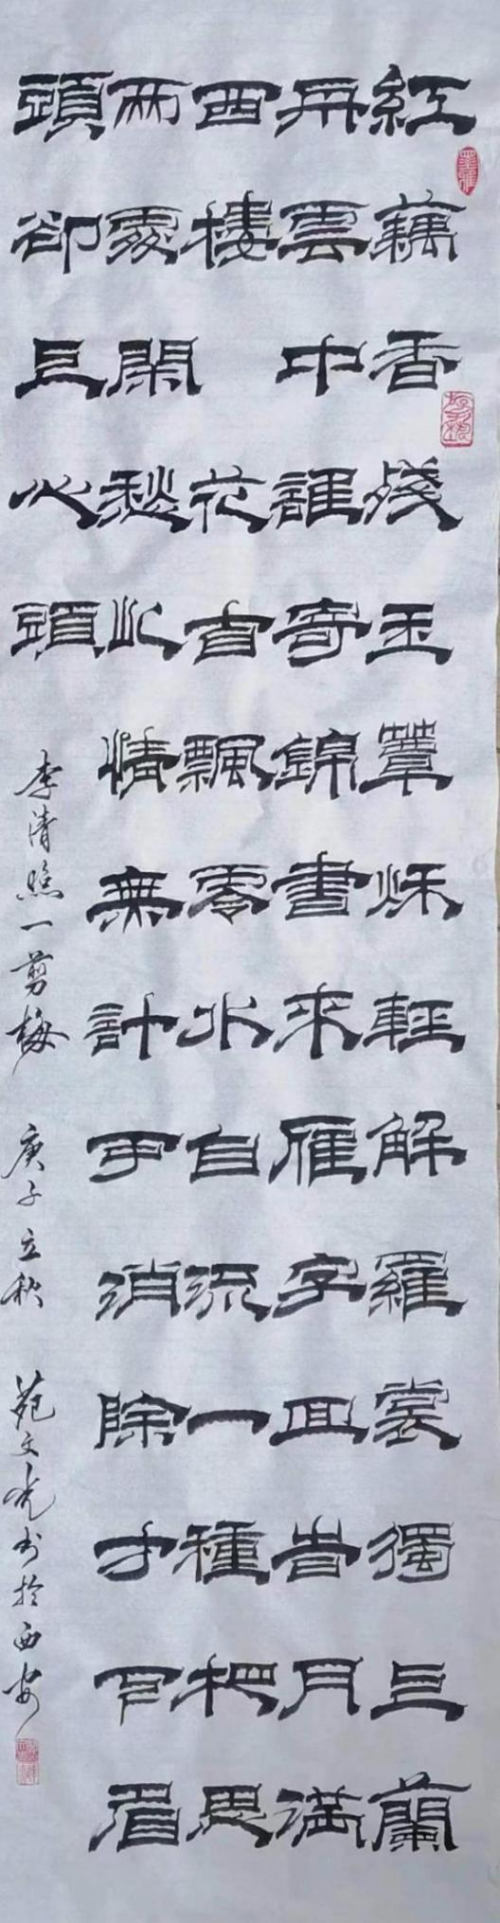 紅藕香殘玉簟秋輕解羅裳獨上蘭
舟雲中誰寄錦書來雁字回旹月滿
西樓 花自飄零水自流一種相思
兩處閑愁此情無計可消除才下眉
頭卻上心頭
李清照一剪梅 庚子立秋 苑文亮书於西安